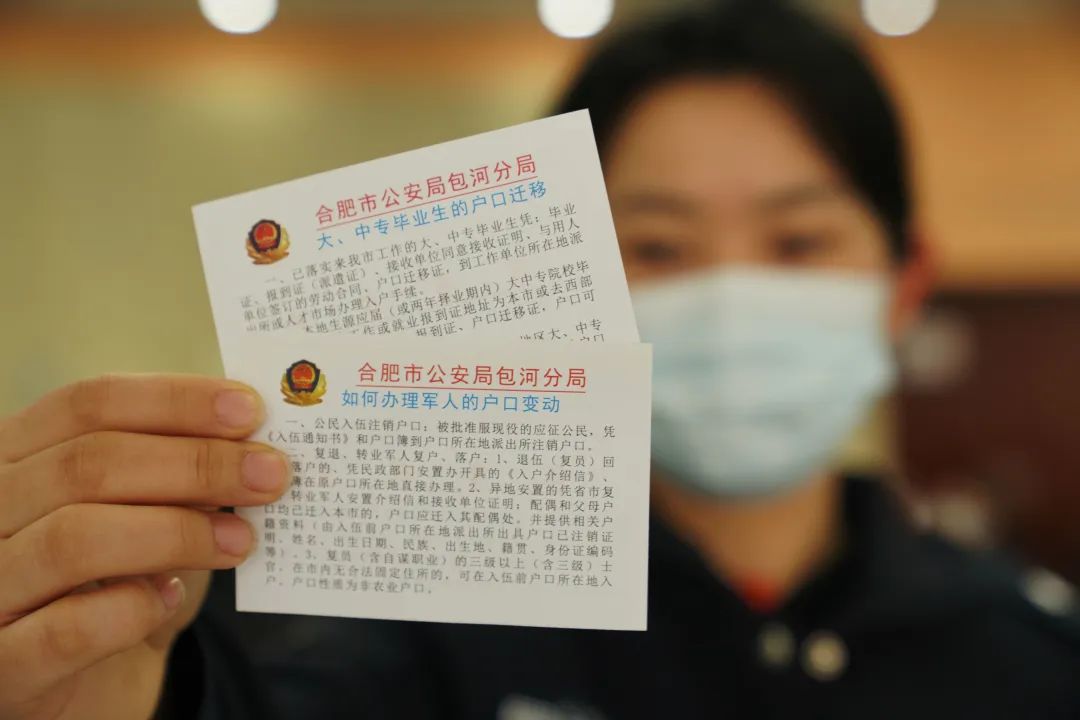 合肥市公安局包河分局
大、中专毕业生的户口迁移
一、已落实来我市工作的大、中专毕业生凭：毕业
证、报到证（派遣证）、接收单位同意接收证明、与用人
单位签订的劳动合同，户口迁移证，到工作单位所在地派
出所或人才市场办理入户手续。
本地生源应届（或两年择业期内）大中专院校毕
工作或就业报到证地址为本市或去西部
报到证、户口迁移证，户口可
地区大、中专
合肥市公安局包河分局
如何办理军人的户口变动
一、公民入伍注销户口：被批准服现役的应征公民，凭
《入伍通知书》和户口簿到户口所在地派出所注销户口。
二、复退、转业军人复户、落户：1、退伍（复员）回
落户的、凭民政部门安置办开具的《入户介绍信》、
簿在原户口所在地直接办理。2、异地安置的凭省市复
转业军人安置介绍信和接收单位证明；配偶和父母户
口均已迁入本市的，户口应迁入其配偶处。并提供相关户
籍资料（由入伍前户口所在地派出所出具户口已注销证
明，姓名、出生日期、民族、出生地、籍贯、身份证编码
等）。3、复员（含自谋职业）的三级以上（含三级）士
官，在市内无合法固定住所的，可在入伍前户口所在地入
户，户口性质为非农业户口。